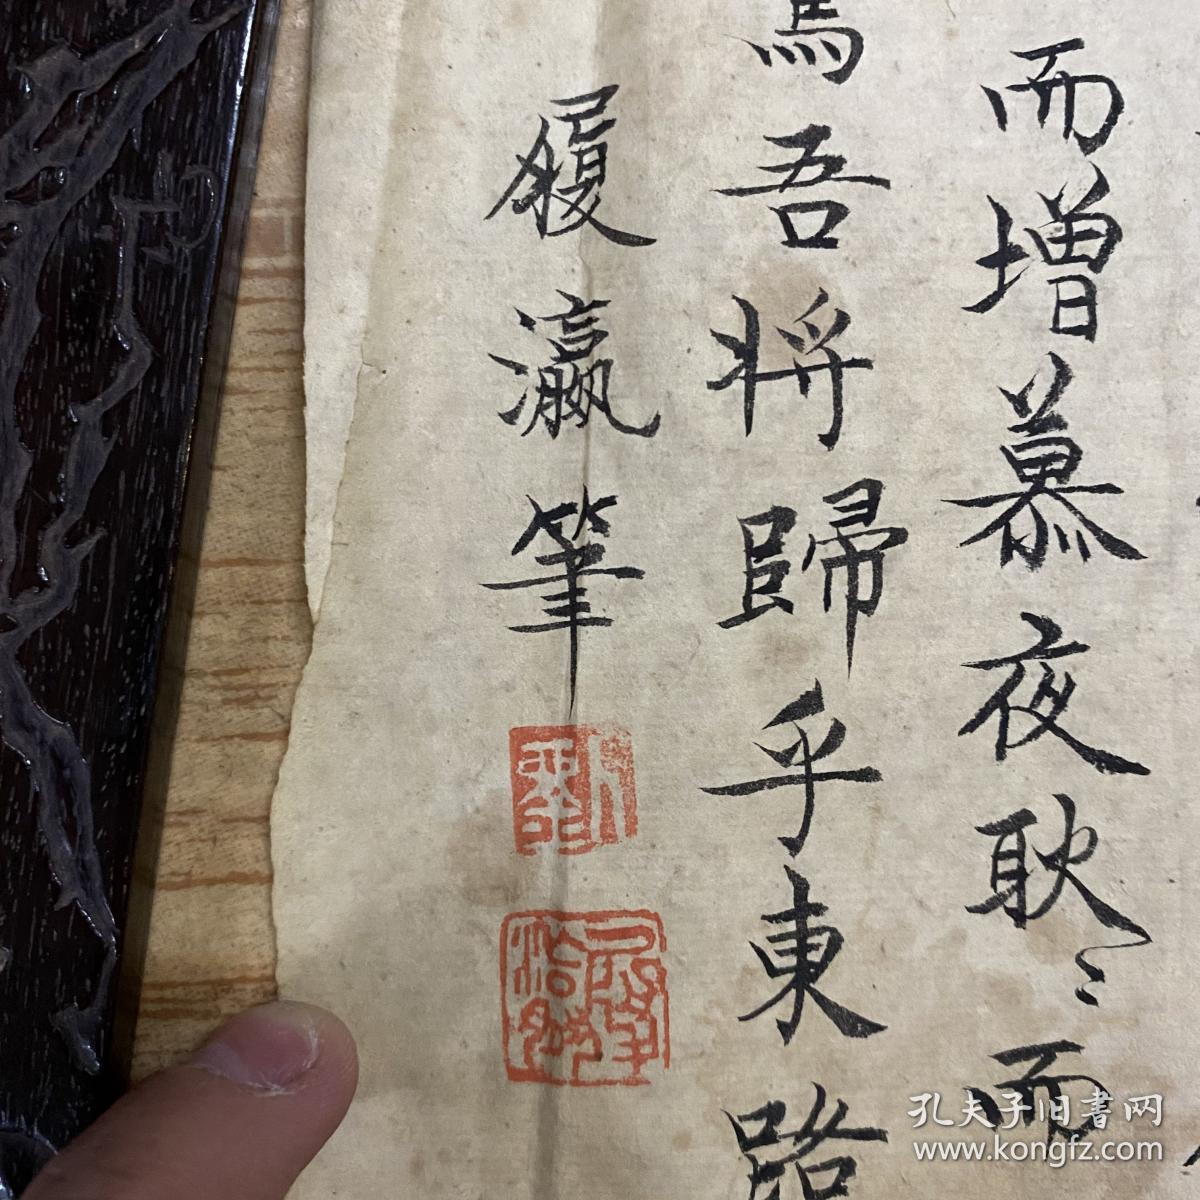 而增慕夜耿々而
焉吾将歸乎東路
履瀛筆
孔夫子旧書网
www.kongfz.com